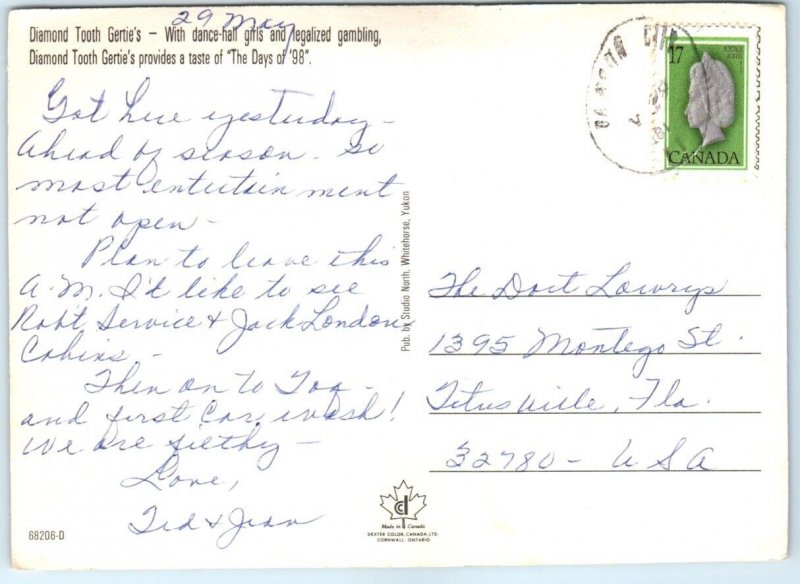 29 May
Diamond Tooth Gertie's – With dance-hall girls and legalized gambling,
Diamond Tooth Gertie's provides a taste of "The Days of '98".
Got here yesterday –
Ahead of season – so
most entertainment
not open –
Plan to leave this
A.M. I'd like to see
Robt Service & Jack London
Cabins –
Then on to Tok –
and first car wash!
We are filthy –
Love,
Ted & Jean
68206-D
Pub. by Studio North, Whitehorse, Yukon
Made in Canada
DEXTER COLOR, CANADA, LTD.
CORNWALL, ONTARIO
17
POSTAGE
POSTES
CANADA
The Lowrys
1395 Montego St.
Titusville, Fla.
32780 – USA